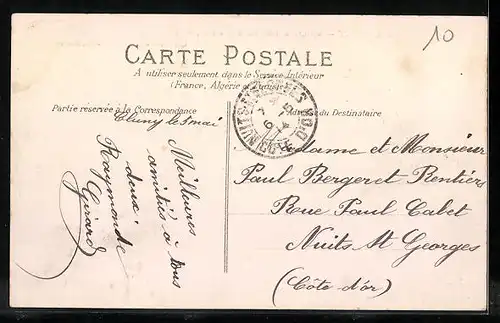 10
CARTE POSTALE
A utiliser seulement dans le Service Intérieur
(France, Algérie et Tunisie)
Partie réservée à la Correspondance
Adresse du Destinataire
Cluny le 5 mai
Meilleures
amitiés à tous
deux.
Raymonde
Girard
NUITS-ST-GEORGES
CÔTE-D'OR
Madame et Monsieur
Paul Bergeret Rentiers
Rue Paul Cabet
Nuits St Georges
(Côte d'or)